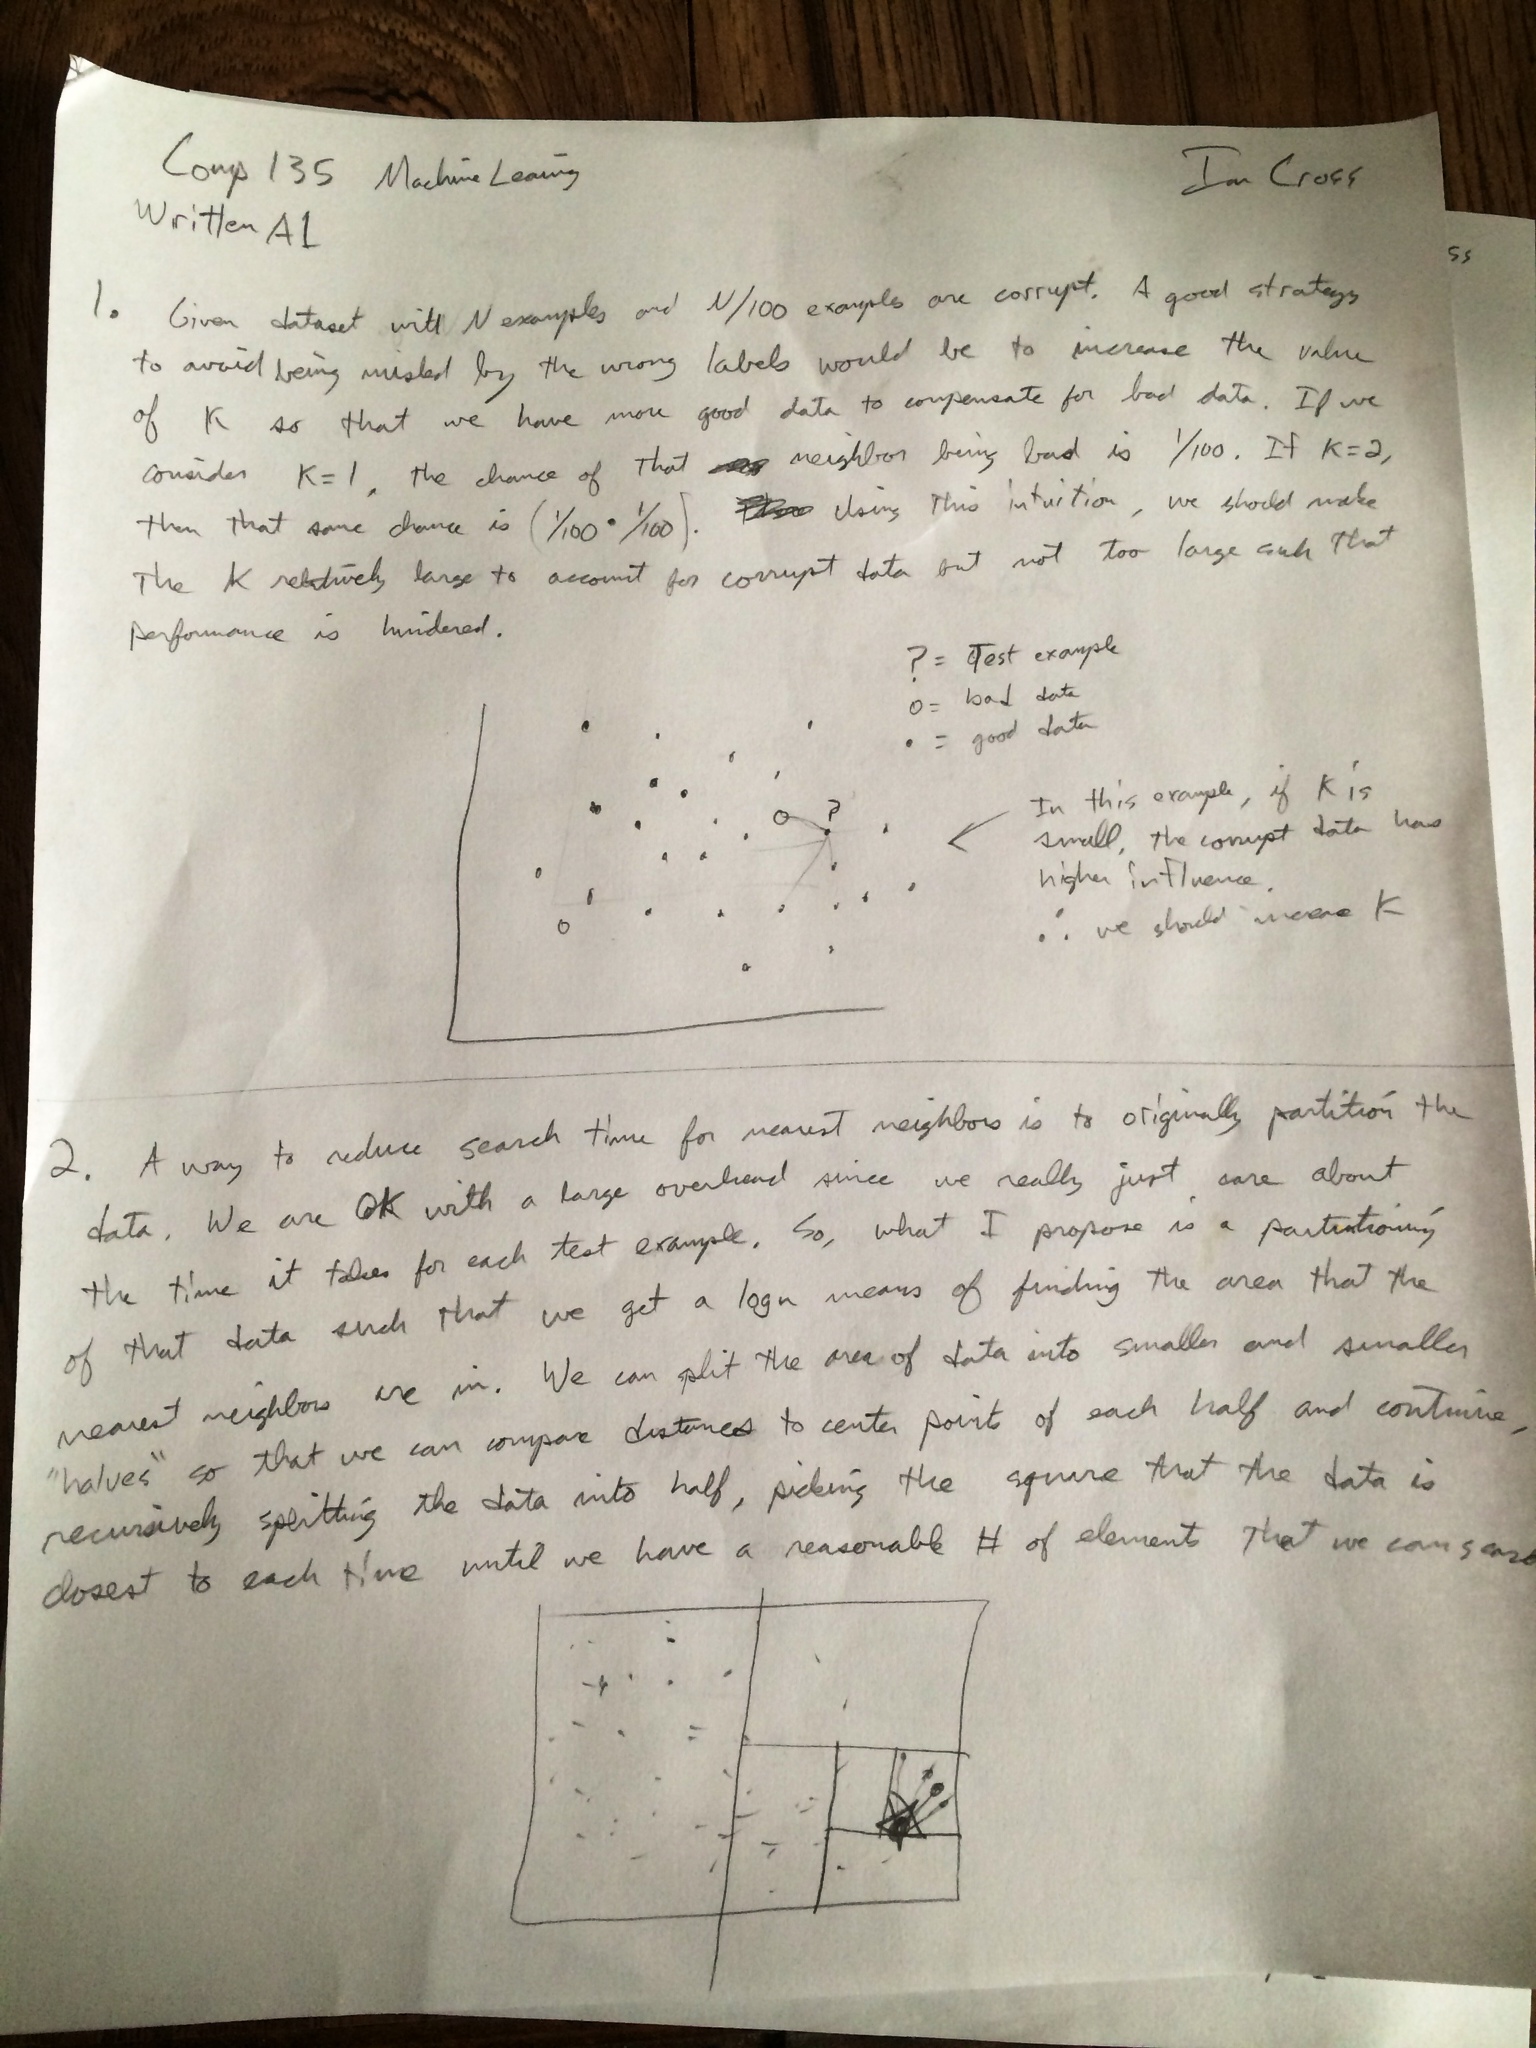 Comp 135 Machine Learning
Ian Cross
Written A1
ss
1. Given dataset with N examples and N/100 examples are corrupt. A good strategy
to avoid being misled by the wrong labels would be to increase the value
of K so that we have more good data to compensate for bad data. If we
consider K=1, the chance of that neighbor being bad is 1/100. If K=2,
then that same chance is (1/100 • 1/100). Using this intuition, we should make
the K relatively large to account for corrupt data but not too large such that
performance is hindered.
? = Test example
o = bad data
• = good data
?
In this example, if K is
small, the corrupt data has
higher influence.
∴ we should increase K
2. A way to reduce search time for nearest neighbors is to originally partition the
data. We are OK with a large overhead since we really just care about
the time it takes for each test example. So, what I propose is a partitioning
of that data such that we get a logn means of finding the area that the
nearest neighbors are in. We can split the area of data into smaller and smaller
"halves" so that we can compare distances to center points of each half and continue,
recursively splitting the data into half, picking the square that the data is
closest to each time until we have a reasonable # of element that we can